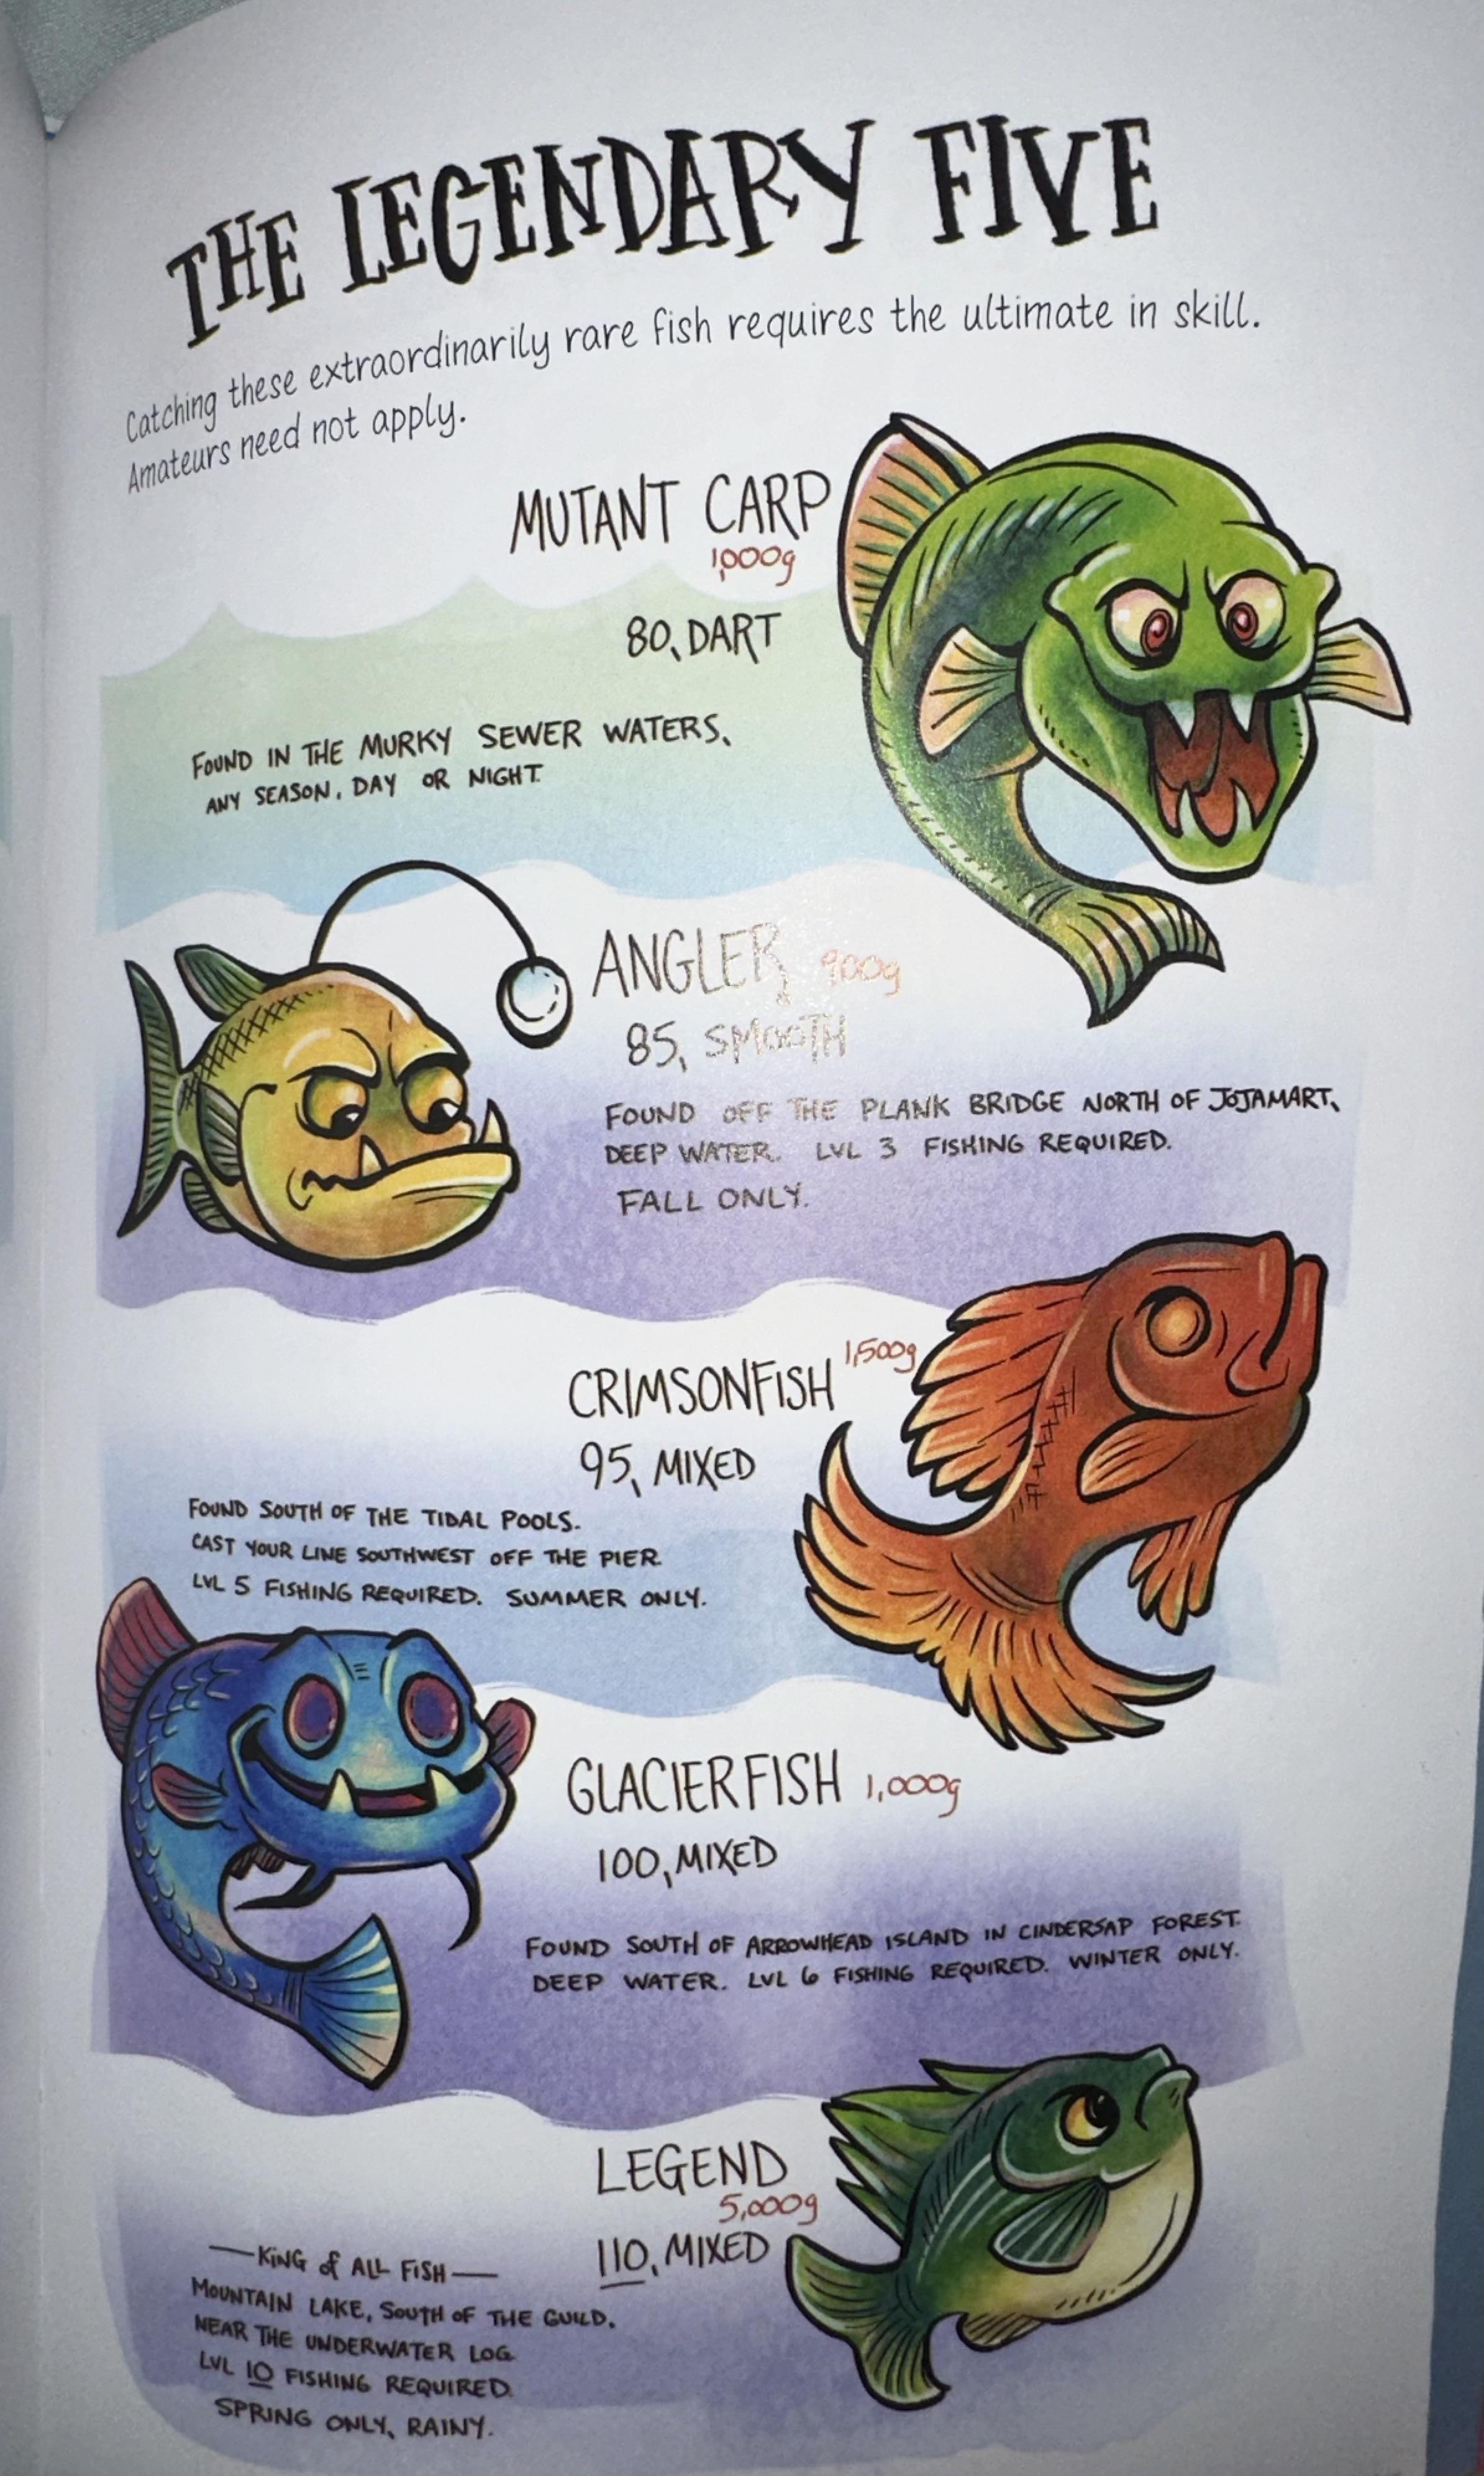 THE LEGENDARY FIVE
Catching these extraordinarily rare fish requires the ultimate in skill.
Amateurs need not apply.
MUTANT CARP
1,000g
80, DART
FOUND IN THE MURKY SEWER WATERS,
ANY SEASON, DAY OR NIGHT.
ANGLER, 900g
85, SMOOTH
FOUND OFF THE PLANK BRIDGE NORTH OF JOJAMART,
DEEP WATER. LVL 3 FISHING REQUIRED.
FALL ONLY.
CRIMSONFISH 1,500g
95, MIXED
FOUND SOUTH OF THE TIDAL POOLS.
CAST YOUR LINE SOUTHWEST OFF THE PIER.
LVL 5 FISHING REQUIRED. SUMMER ONLY.
GLACIERFISH 1,000g
100, MIXED
FOUND SOUTH OF ARROWHEAD ISLAND IN CINDERSAP FOREST.
DEEP WATER. LVL 6 FISHING REQUIRED. WINTER ONLY.
LEGEND
5,000g
110, MIXED
—KING of ALL FISH—
MOUNTAIN LAKE, SOUTH OF THE GUILD.
NEAR THE UNDERWATER LOG.
LVL 10 FISHING REQUIRED.
SPRING ONLY, RAINY.